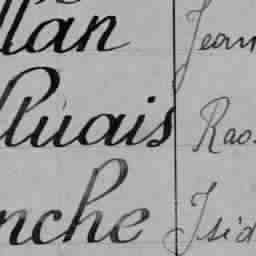 llan Jean
Ruais Rao
nche Isid